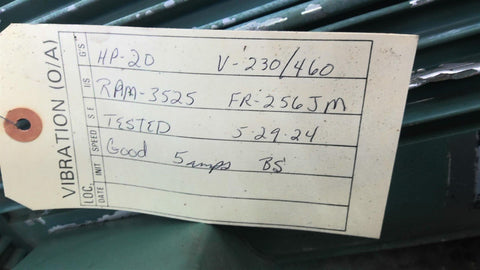 VIBRATION (O/A)
G'S
I/S
S.E.
LOC. SPEED
DATE INIT
HP-20 V-230/460
RPM-3525 FR-256JM
TESTED 5-29-24
Good 5 amps BS